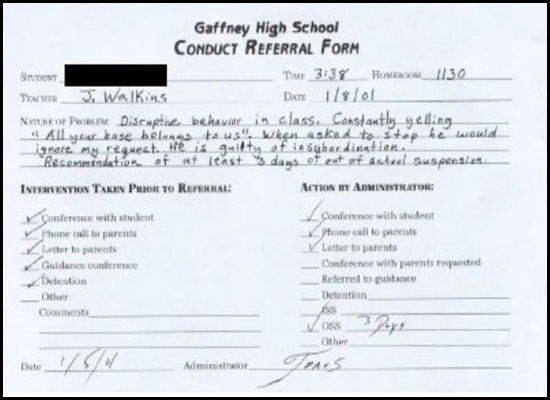 Gaffney High School
CONDUCT REFERRAL FORM
STUDENT
TIME 3:38 HOMEROOM 1130
TEACHER J. Walkins
DATE 1/8/01
NATURE OF PROBLEM: Disruptive behavior in class. Constantly yelling
"All your base belongs to us". When asked to stop he would
ignore my request. He is guilty of insubordination.
Recommendation of at least 3 days of out of school suspension
INTERVENTION TAKEN PRIOR TO REFERRAL:
Conference with student
Phone call to parents
Letter to parents
Guidance conference
Detention
Other
Comments
ACTION BY ADMINISTRATOR:
Conference with student
Phone call to parents
Letter to parents
Conference with parents requested
Referred to guidance
Detention
ISS
OSS 3 Days
Other
Date
Administrator